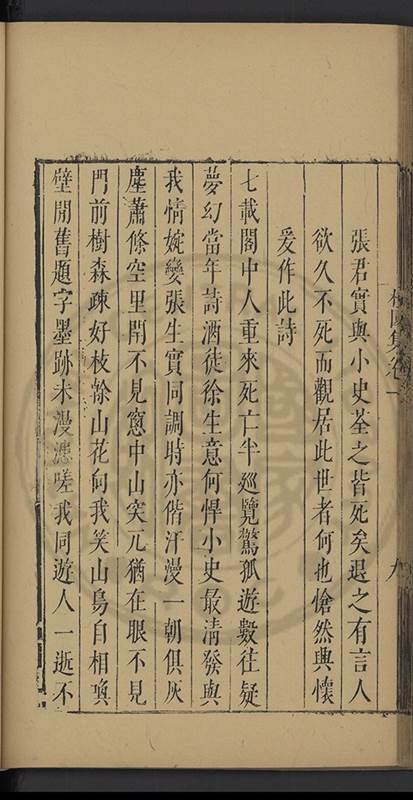 張君實與小史荃之皆死矣退之有言人
欲久不死而觀居此世者何也愴然興懷
爰作此詩
七載閣中人重來死亡半巡覽驚孤遊數往疑
夢幻當年詩酒徒徐生意何悍小史最清發與
我情婉孌張生實同調時亦偕汗漫一朝俱灰
塵蕭條空里閈不見窻中山突兀猶在眼不見
門前樹森疎好枝榦山花向我笑山鳥自相喚
壁間舊題字墨跡未漫漶嗟我同遊人一逝不